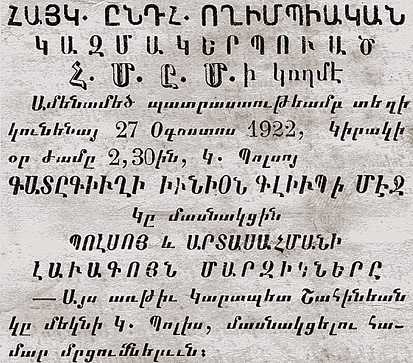 ՀԱՅԿ. ԸՆԴՀ. ՈՂԻՄՊԻԱԿԱՆ
ԿԱԶՄԱԿԵՐՊՈՒԱԾ
Հ. Մ. Ը. Մ.ի կողմէ
Ամենամեծ պատրաստութեամբ տեղի
կունենայ 27 Օգոստոս 1922, Կիրակի
օր ժամը 2,30ին, Կ. Պոլսոյ
ԳԱՏԸԳԻՒՂԻ ԻՒՆԻՕՆ ԳԼԻՒՊի ՄԷՋ
Կը մասնակցին
ՊՈԼՍՈՅ և ԱՐՏԱՍԱՀՄԱՆԻ
ԼԱՒԱԳՈՅՆ ՄԱՐԶԻԿՆԵՐԸ
— Այս առթիւ Կարապետ Շահինեան
կը մեկնի Կ. Պոլիս, մասնակցելու հա-
մար մրցումներուն։